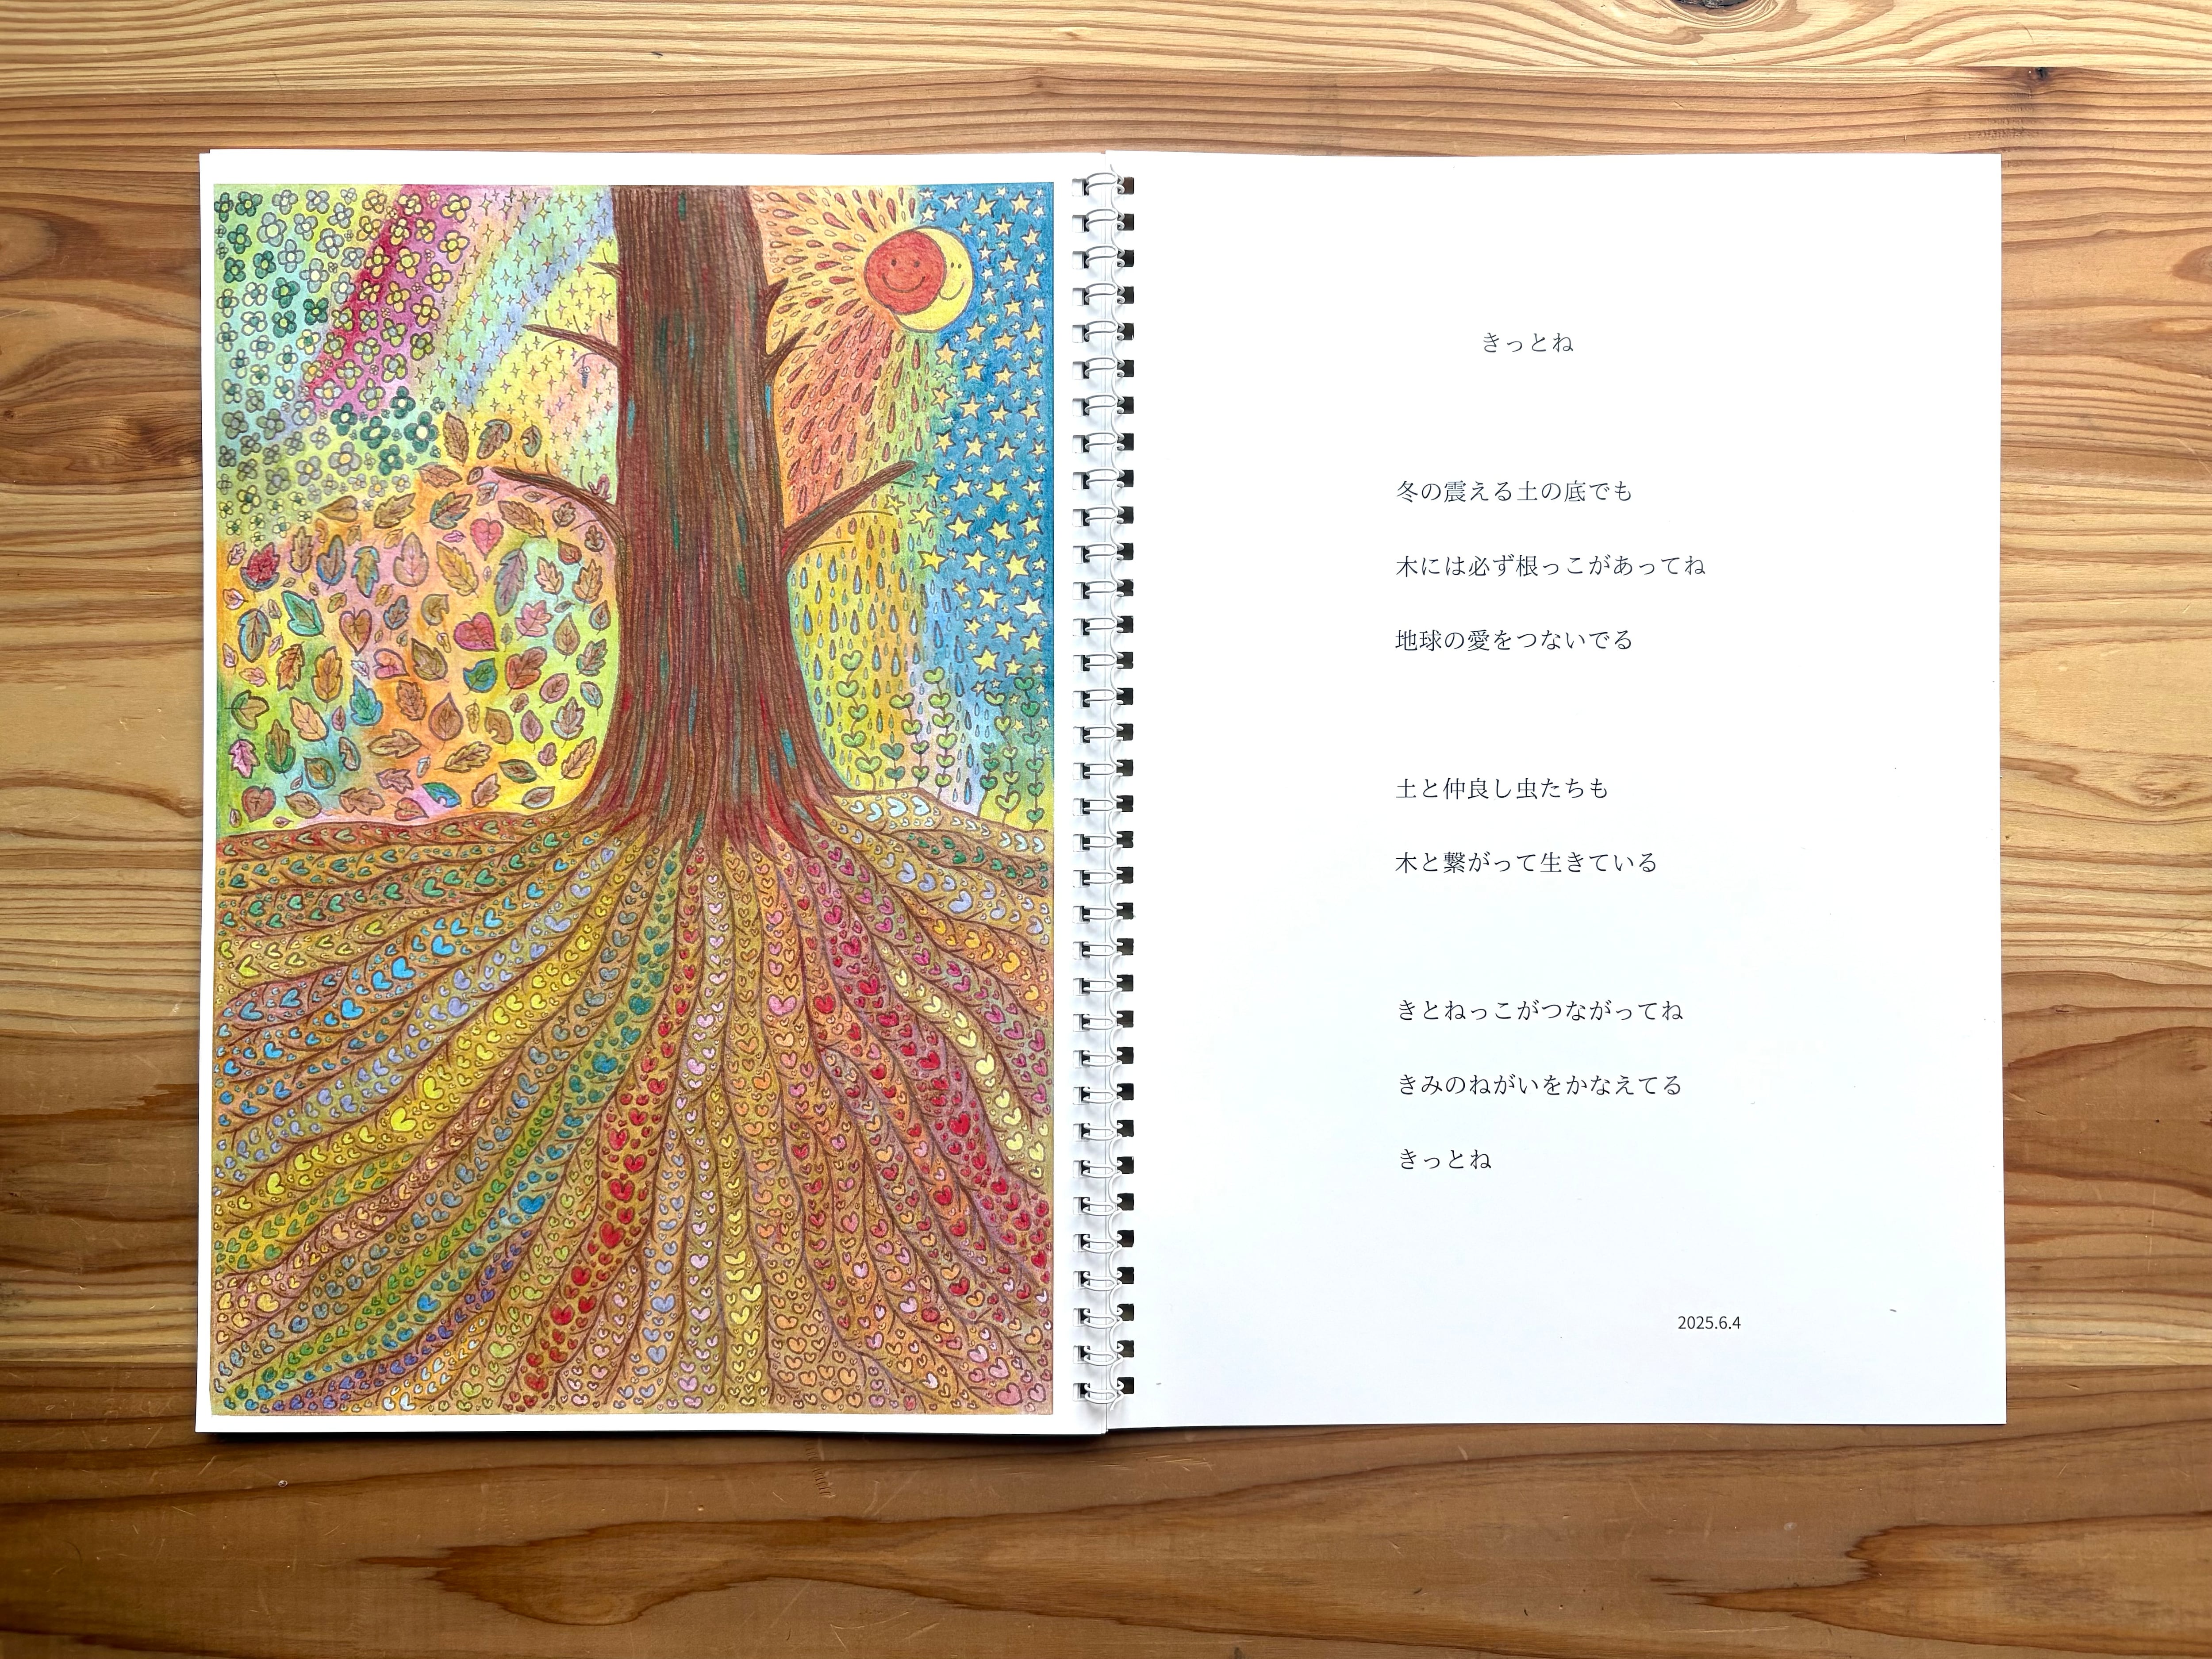 きっとね
冬の震える土の底でも
木には必ず根っこがあってね
地球の愛をつないでる
土と仲良し虫たちも
木と繋がって生きている
きとねっこがつながってね
きみのねがいをかなえてる
きっとね
2025.6.4